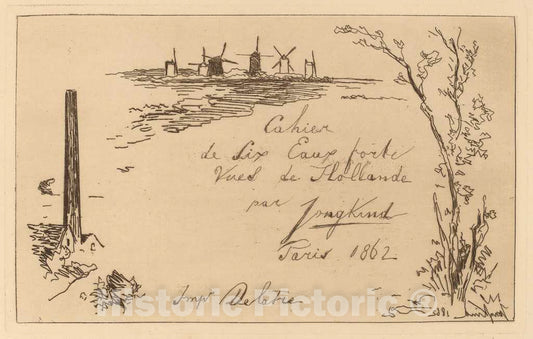 Cahier
de Six Eaux forte
Vues de Hollande
par Jongkind
Paris 1862
Imp. Delatre
Jongkind 1862
Historic Pictoric